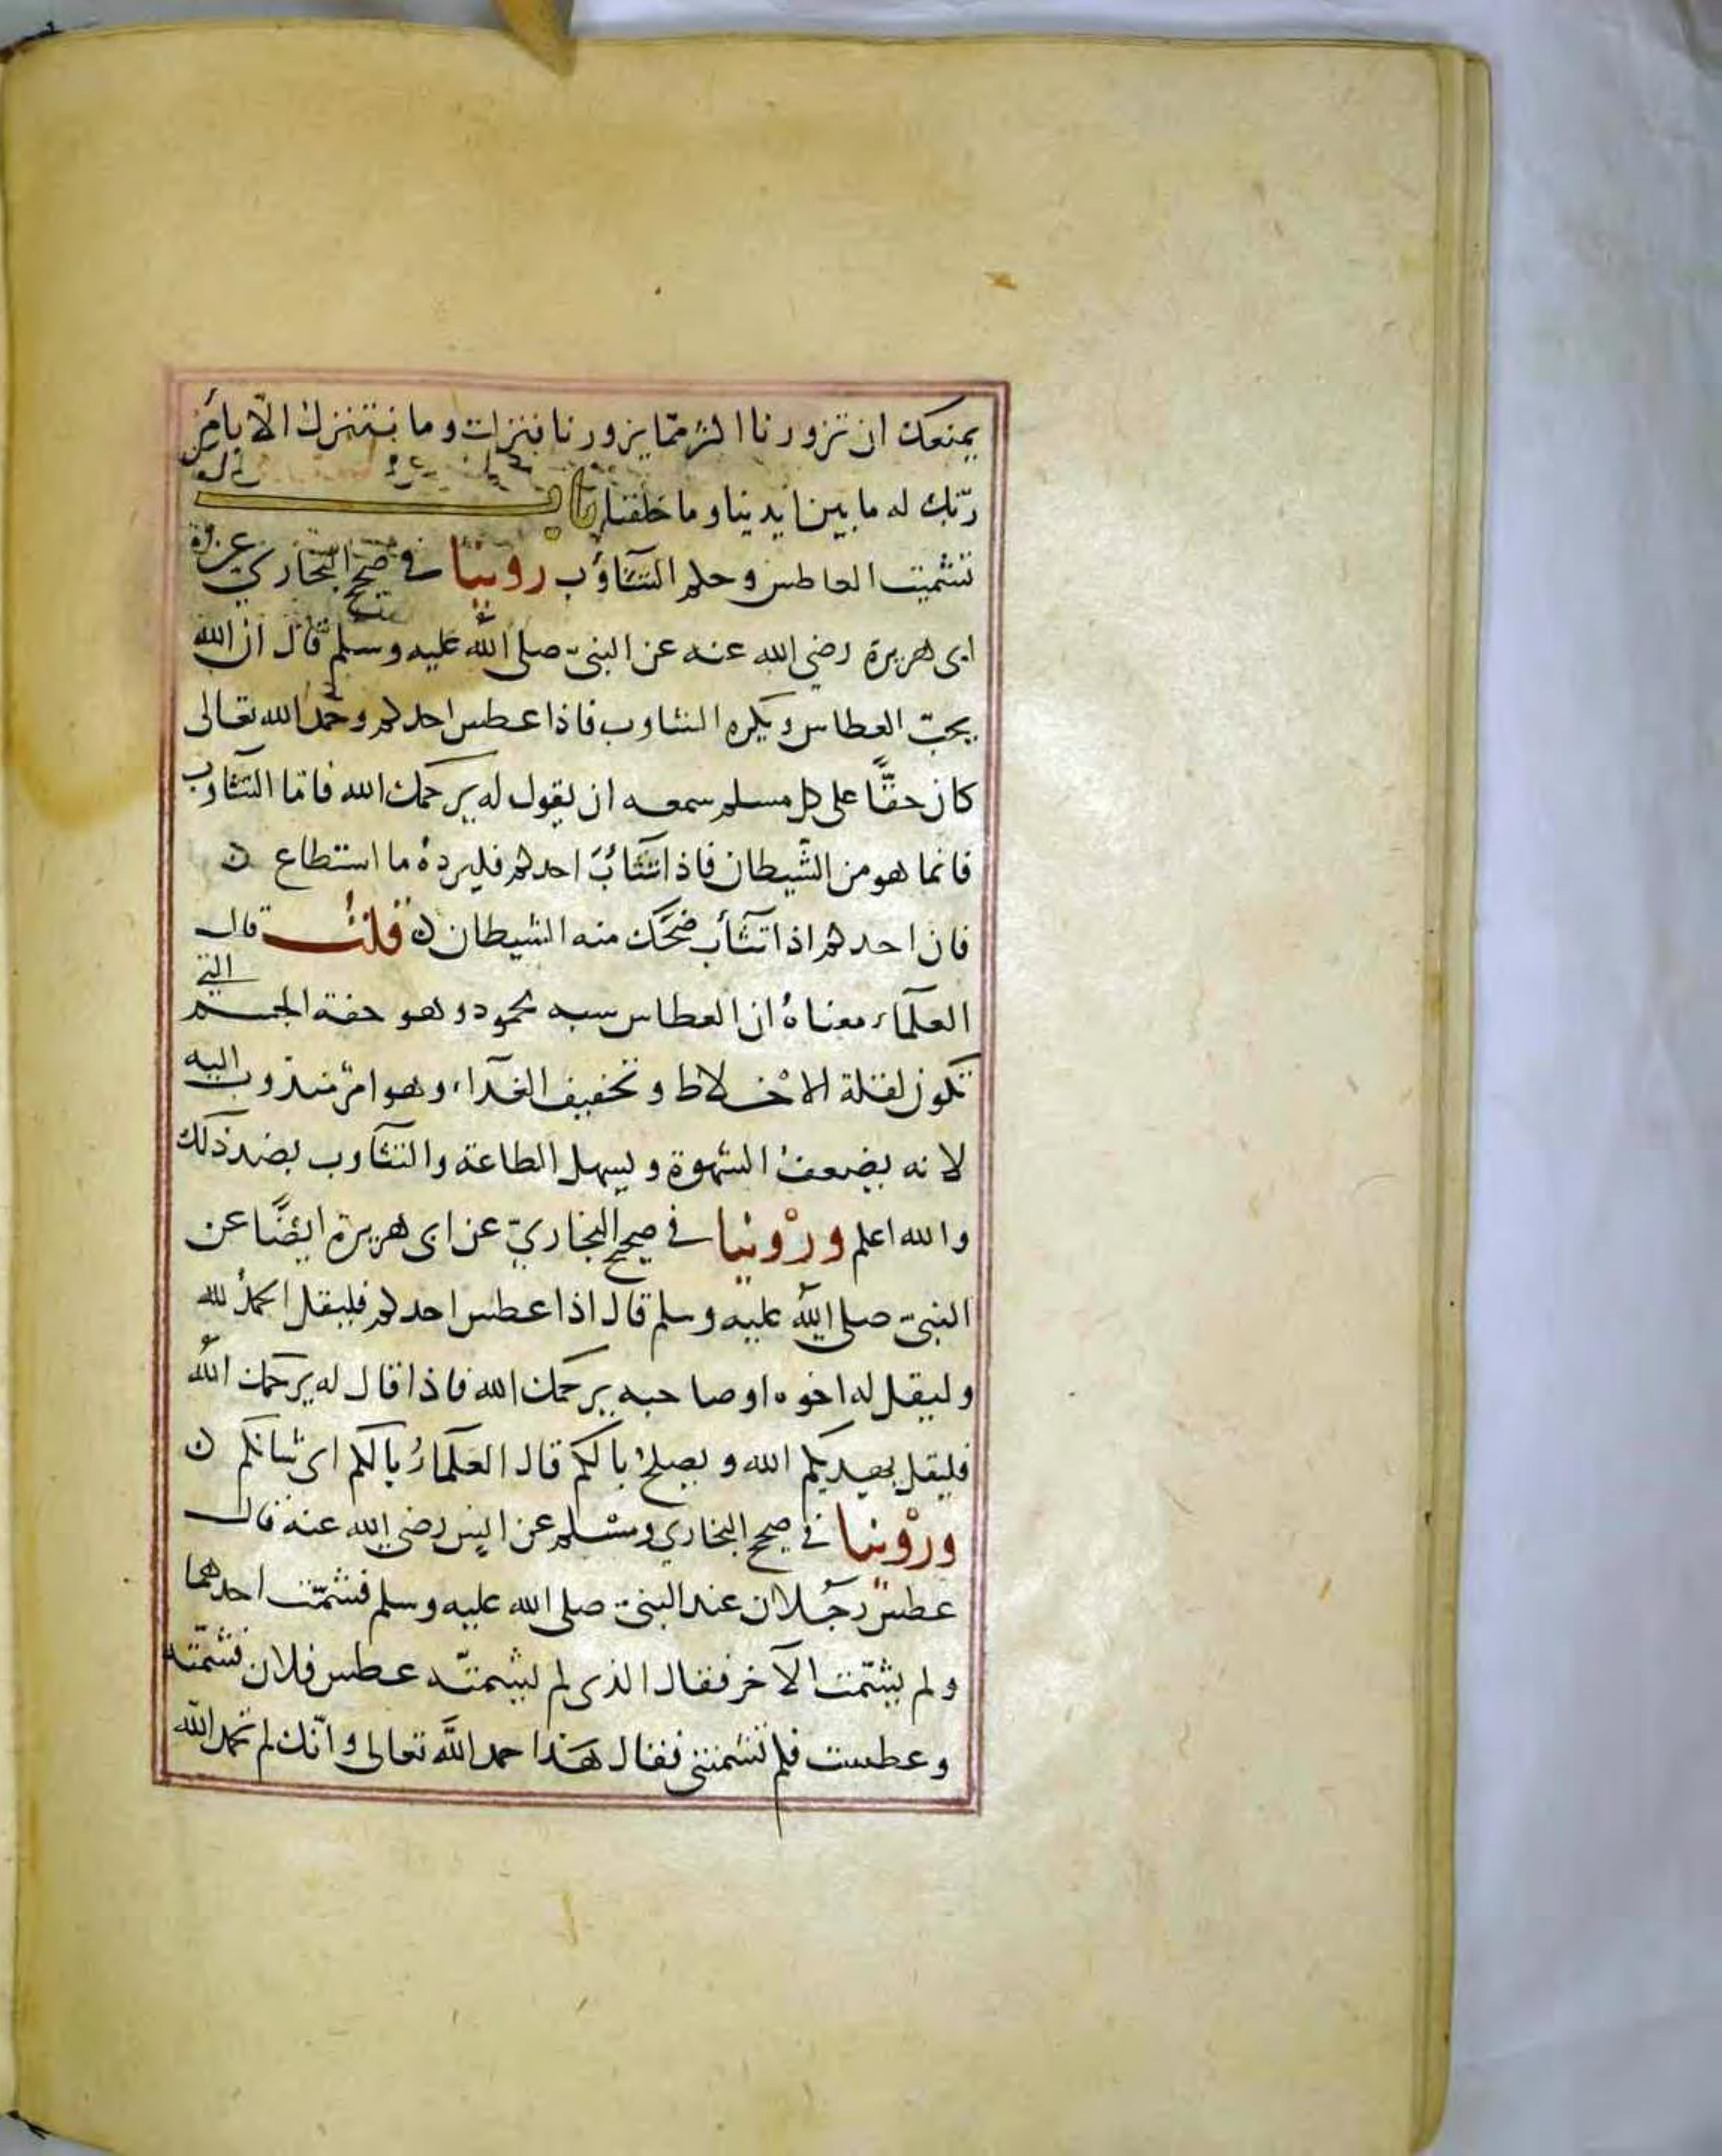 يمنعك ان تزورنا اكثر مما يزورنا فنزلت وما نتنزل الّا بأمر
ربّك له ما بين ايدينا وما خلفنا باب
تشميت العاطس وحكم التثآؤب روينا في صحيح البخاري عن
ابى هريرة رضي الله عنه عن النبي صلى الله عليه وسلم قال ان الله
يحبّ العطاس ويكره التثاوب فاذا عطس احدكم وحمد الله تعالى
كان حقًّا على كل مسلم سمعه ان يقول له يرحمك الله فاما التثآوب
فانما هو من الشّيطان فاذا تثآئب احدكم فليردهُ ما استطاع ن
فان احدكم اذا تثآب ضحك منه الشيطان ن قلتُ قال
العلمآء معناهُ ان العطاس سببه محمود وهو خفة الجسم التي
تكون لقلة الاخلاط وتخفيف الغدآء وهو امر مندوب اليه
لانه يضعف الشهوة ويسهل الطاعة والتثآوب بضد ذلك
والله اعلم وروينا في صحيح البخاريّ عن ابى هريرة ايضًا عن
النبيّ صلى الله عليه وسلم قال اذا عطس احدكم فليقل الحمدُ لله
وليقل له اخوه او صاحبه يرحمك الله فاذا قال له يرحمك الله
فليقل يهديكم الله ويصلحُ بالكم قال العلمآءُ بالكم اى شانكم ن
وروينا في صحيح البخاري ومسلم عن انس رضي الله عنه قال
عطس رجُلان عند النبيّ صلى الله عليه وسلم فشمّت احدهما
ولم يشمّت الآخر فقال الذى لم يشمته عطس فلان فشمّته
وعطست فلم تشمتني فقال هذا حمد اللَّه تعالى وانّك لم تحمد الله